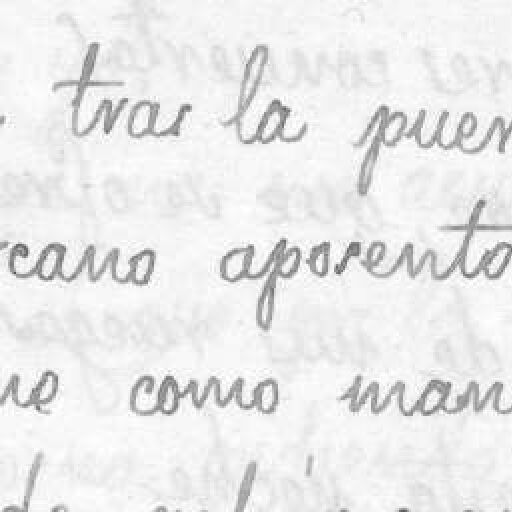 tras la puer
cano aposento
ue como man